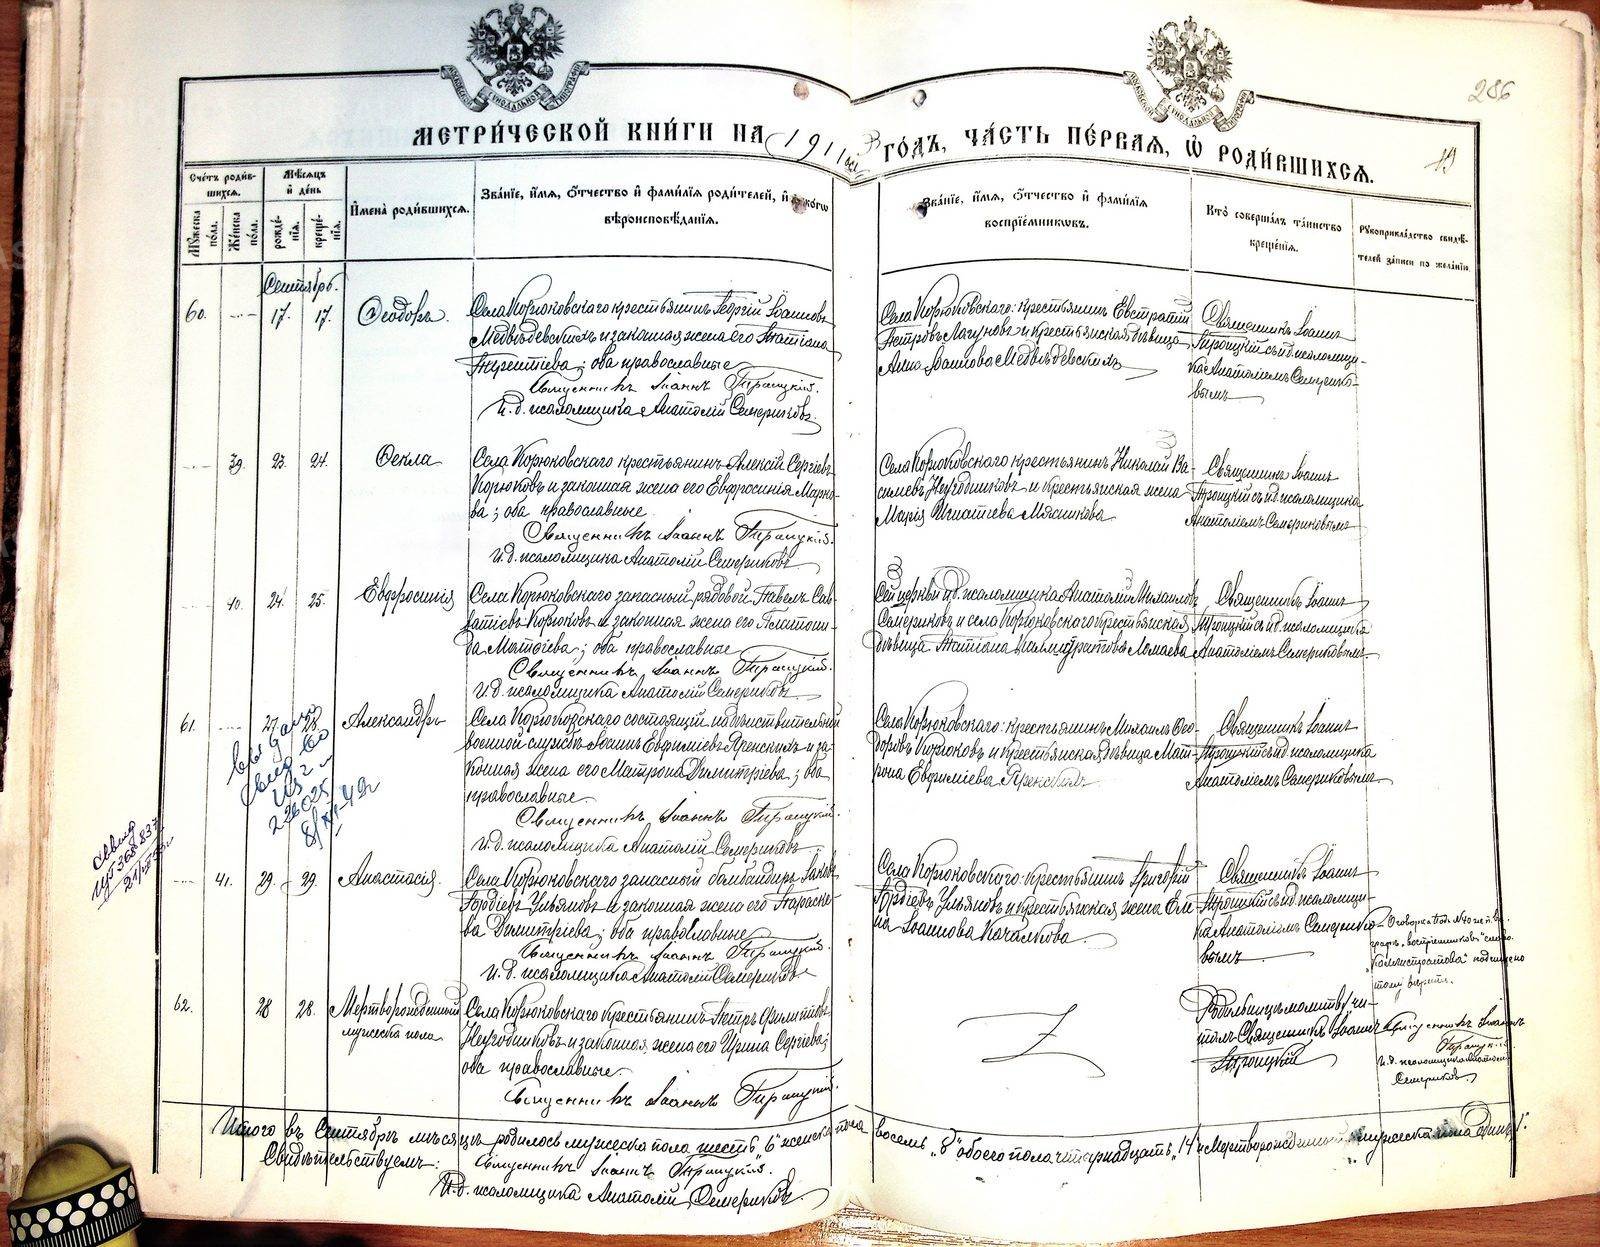 286
МОСКОВСКОЙ СѴНОДАЛЬНОЙ ТИПОГРАФІИ
МОСКОВСКОЙ СѴНОДАЛЬНОЙ ТИПОГРАФІИ
МЕТРИ́ЧЕСКОЙ КНИ́ГИ НА 1911 ГО́ДЪ, ЧА́СТЬ ПЕ́РВАЯ, Ѽ РОДИ́ВШИХСЯ.
19
Сче́тъ роди́вшихся.
Мѣ́сяцъ и҆ де́нь
И҆мена̀ роди́вшихся.
Зва́нїе, и҆́мя, ѻ҆́тчество и҆ фами́лїя роди́телей, и҆ како́гѡ вѣроисповѣ́данїя.
Зва́нїе, и҆́мя, ѻ҆́тчество и҆ фами́лїя воспрїе́мникѡвъ.
Кто̀ соверша́лъ та́инство креще́нїя.
Рꙋкоприкла́дство свидѣ́телей за́писи по жела́нїю.
Мꙋ́жеска по́ла.
Же́нска по́ла.
рожде́нїя.
креще́нїя.
Сентябрь.
60.
17. 17.
Ѳеодоръ.
Села Корюковскаго крестьянинъ Георгій Іоанновъ
Медвѣдевскихъ и законная жена его Татіана
Терентіева; оба православные
Священникъ Іоаннъ Троицкій.
И. д. псаломщика Анатолій Семериковъ.
Села Корюковскаго крестьянинъ Евстратій
Петровъ Лагуновъ и крестьянская дѣвица
Анна Іоаннова Медвѣдевскихъ
Священникъ Іоаннъ
Троицкій съ и. д. псаломщи-
ка Анатоліемъ Семерико-
вымъ
39. 23. 24.
Ѳекла
Села Корюковскаго крестьянинъ Алексій Сергіевъ
Корюковъ и законная жена его Евфросинія Марко-
ва; оба православные
Священникъ Іоаннъ Троицкій.
И. д. псаломщика Анатолій Семериковъ
Села Корюковскаго крестьянинъ Николай Ва-
силіевъ Неугодниковъ и крестьянская жена
Марія Игнатіева Мясникова
Священникъ Іоаннъ
Троицкій съ и. д. псаломщика
Анатоліемъ Семериковымъ
40. 24. 25.
Евфросинія
Села Корюковскаго запасный рядовой Павелъ Сав-
ватіевъ Корюковъ и законная жена его Платони-
да Матѳіева; оба православные
Священникъ Іоаннъ Троицкій.
И. д. псаломщика Анатолій Семериковъ
Сей церкви и. д. псаломщика Анатолій Михаиловъ
Семериковъ и села Корюковскаго крестьянская
дѣвица Татіана Каллистратова Ломаева
Священникъ Іоаннъ
Троицкій съ и. д. псаломщика
Анатоліемъ Семериковымъ
61.
27. 28.
Александръ
Села Корюковскаго состоящій на дѣйствительной
военной службѣ Іоаннъ Евфиміевъ Яренскихъ и за-
конная жена его Матрона Димитріева; оба
православные
Священникъ Іоаннъ Троицкій.
И. д. псаломщика Анатолій Семериковъ
Села Корюковскаго крестьянинъ Михаилъ Ѳео-
доровъ Корюковъ и крестьянская дѣвица Мат-
рона Евфиміева Яренскихъ
Священникъ Іоаннъ
Троицкій съ и. д. псаломщика
Анатоліемъ Семериковымъ
41. 29. 29.
Анастасія.
Села Корюковскаго запасный бомбандиръ Іаковъ
Гордіевъ Ульяновъ и законная жена его Параске-
ва Димитріева; оба православные
Священникъ Іоаннъ Троицкій.
И. д. псаломщика Анатолій Семериковъ
Села Корюковскаго крестьянинъ Григорій
Гордіевъ Ульяновъ и крестьянская жена Еле-
на Іоаннова Качалкова.
Священникъ Іоаннъ
Троицкій съ и. д. псаломщи-
ка Анатоліемъ Семерико-
вымъ
62.
28 28.
Мертворожденный
мужеска пола
Села Корюковскаго крестьянинъ Петръ Филипповъ
Неугодниковъ и законная жена его Ирина Сергіева;
оба православные.
Священникъ Іоаннъ Троицкій.
Родильницѣ молитву чи-
талъ Священникъ Іоаннъ
Троицкій
Священникъ Іоаннъ
Троицкій
И. д. псаломщика Анатолій
Семериковъ
Итого въ Сентябрѣ мѣсяцѣ родилось мужеска пола шесть "6" женска пола восемь "8" обоего пола четырнадцать "14" и мертворожденный мужеска пола одинъ 1.
Свидѣтельствуемъ: Священникъ Іоаннъ Троицкій.
И. д. псаломщика Анатолій Семериковъ.